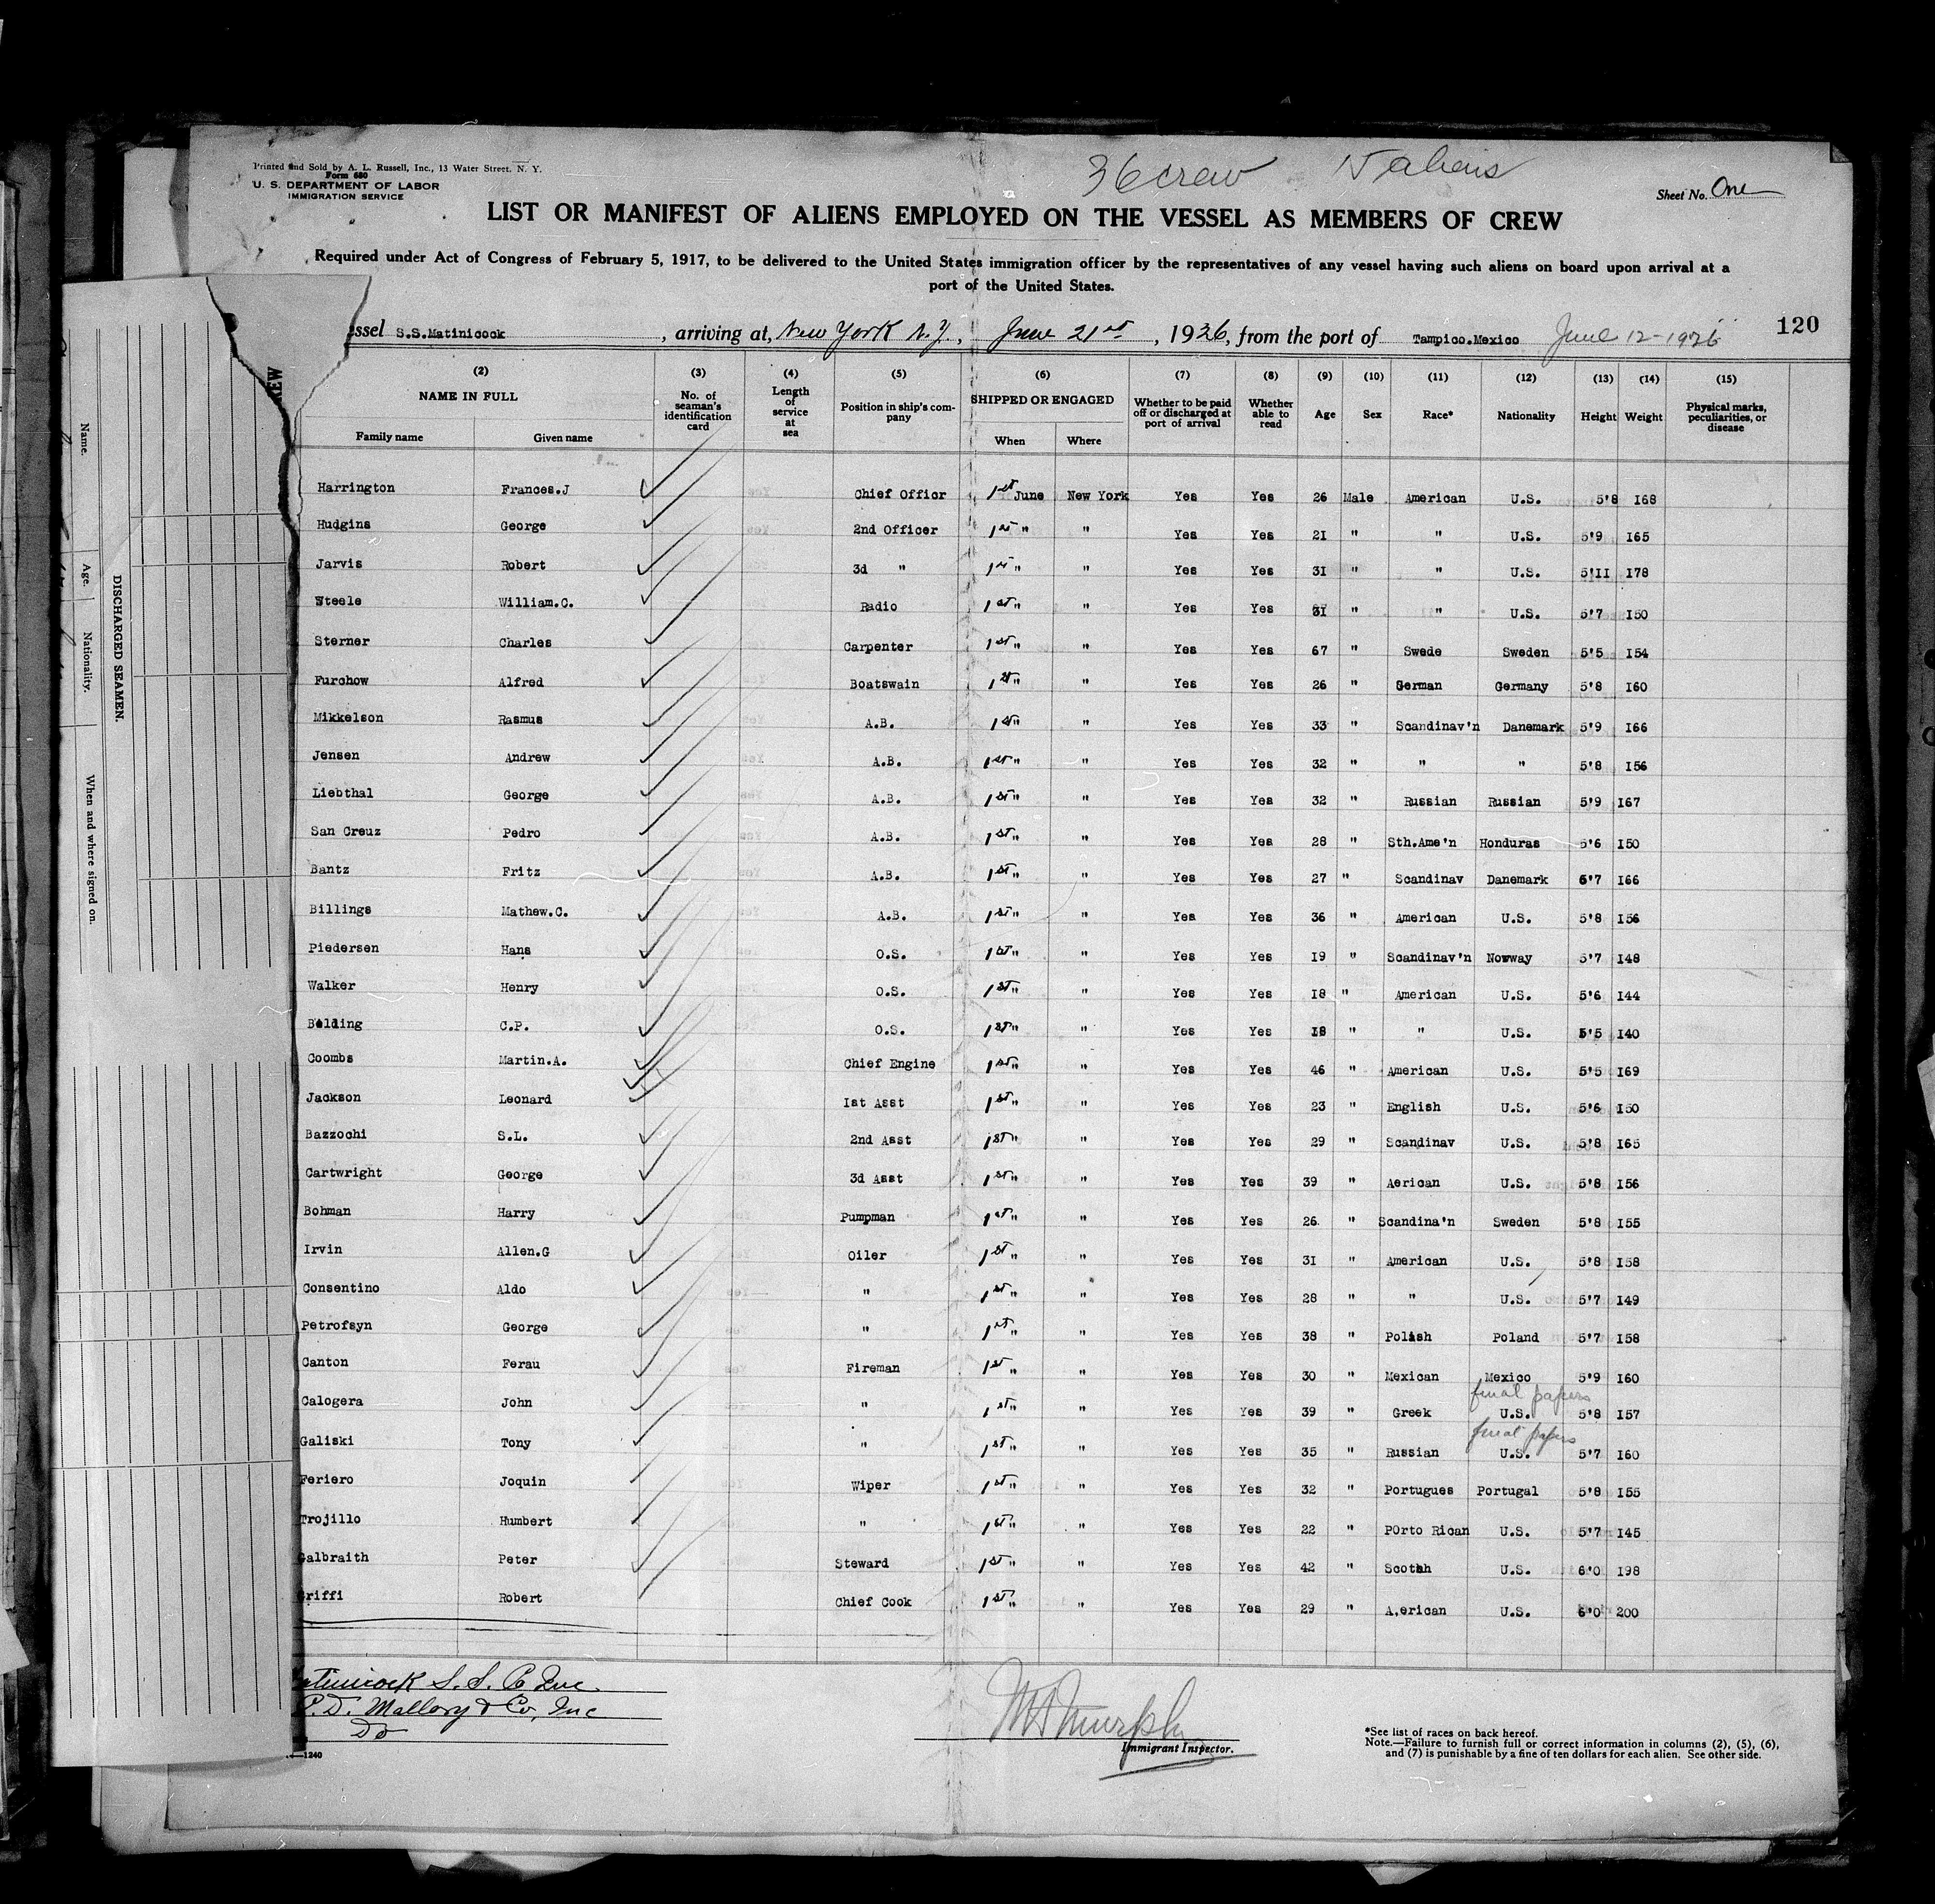 36 crew 15 aliens
Printed and Sold by A. L. Russell, Inc., 13 Water Street, N. Y.
Form 680
U. S. DEPARTMENT OF LABOR
IMMIGRATION SERVICE
Sheet No. One
LIST OR MANIFEST OF ALIENS EMPLOYED ON THE VESSEL AS MEMBERS OF CREW
Required under Act of Congress of February 5, 1917, to be delivered to the United States immigration officer by the representatives of any vessel having such aliens on board upon arrival at a
port of the United States.
essel S.S.Matinicock, arriving at, New York N.Y., June 21st, 1926, from the port of Tampico.Mexico June 12-1926
120
(2) (3) (4) (5) (6) (7) (8) (9) (10) (11) (12) (13) (14) (15)
NAME IN FULL No. of seaman's identification card Length of service at sea Position in ship's company SHIPPED OR ENGAGED Whether to be paid off or discharged at port of arrival Whether able to read Age Sex Race* Nationality Height Weight Physical marks, peculiarities, or disease
Family name Given name When Where
Harrington Frances.J Chief Officr 1st June New York Yes Yes 26 Male American U.S. 5'8 I68
Hudgins George 2nd Officer 1st " " Yes Yes 2I " " U.S. 5'9 I65
Jarvis Robert 3d " 1st " " Yes Yes 3I " " U.S. 5'II I78
Steele William.C. Radio 1st " " Yes Yes 3I " " U.S. 5'7 I50
Sterner Charles Carpenter 1st " " Yes Yes 67 " Swede Sweden 5'5 I54
Furchow Alfred Boatswain 1st " " Yes Yes 26 " German Germany 5'8 I60
Mikkelson Rasmus A.B. 1st " " Yes Yes 33 " Scandinav'n Danemark 5'9 I66
Jensen Andrew A.B. 1st " " Yes Yes 32 " " " 5'8 I56
Liebthal George A.B. 1st " " Yes Yes 32 " Russian Russian 5'9 I67
San Creuz Pedro A.B. 1st " " Yes Yes 28 " Sth.Ame'n Honduras 5'6 I50
Bantz Fritz A.B. 1st " " Yes Yes 27 " Scandinav Danemark 5'7 I66
Billings Mathew.C. A.B. 1st " " Yes Yes 36 " American U.S. 5'8 I56
Piedersen Hans O.S. 1st " " Yes Yes I9 " Scandinav'n Nowway 5'7 I48
Walker Henry O.S. 1st " " Yes Yes I8 " American U.S. 5'6 I44
Belding C.P. O.S. 1st " " Yes Yes I8 " " U.S. 5'5 I40
Coombs Martin.A. Chief Engine 1st " " Yes Yes 46 " American U.S. 5'5 I69
Jackson Leonard Ist Asst 1st " " Yes Yes 23 " English U.S. 5'6 I50
Bazzochi S.L. 2nd Asst 1st " " Yes Yes 29 " Scandinav U.S. 5'8 I65
Cartwright George 3d Asst 1st " " Yes Yes 39 " Aerican U.S. 5'8 I56
Bohman Harry Pumpman 1st " " Yes Yes 26 " Scandina'n Sweden 5'8 I55
Irvin Allen.G Oiler 1st " " Yes Yes 3I " American U.S. 5'8 I58
Consentino Aldo " 1st " " Yes Yes 28 " " U.S. 5'7 I49
Petrofsyn George " 1st " " Yes Yes 38 " Polish Poland 5'7 I58
Canton Ferau Fireman 1st " " Yes Yes 30 " Mexican Mexico 5'9 I60
final papers
Calogera John " 1st " " Yes Yes 39 " Greek U.S. 5'8 I57
final papers
Galiski Tony " 1st " " Yes Yes 35 " Russian U.S. 5'7 I60
Feriero Joquin Wiper 1st " " Yes Yes 32 " Portugues Portugal 5'8 I55
Trojillo Humbert " 1st " " Yes Yes 22 " POrto Rican U.S. 5'7 I45
Galbraith Peter Steward 1st " " Yes Yes 42 " Scotch U.S. 6'0 I98
Griffi Robert Chief Cook 1st " " Yes Yes 29 " A.erican U.S. 6'0 200
atinicock S. S. Co Inc.
P.D. Mallory & Co, Inc
Do
Immigrant Inspector.
—1240
*See list of races on back hereof.
Note.—Failure to furnish full or correct information in columns (2), (5), (6),
and (7) is punishable by a fine of ten dollars for each alien. See other side.
Name.
Age.
Nationality.
When and where signed on.
DISCHARGED SEAMEN.
EW